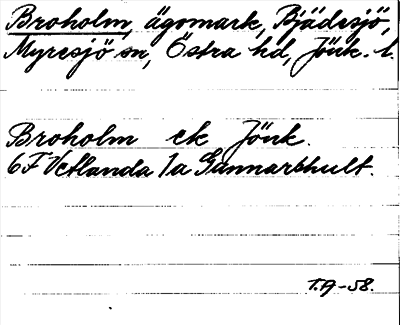 Broholm, ägomark, Bjädesjö,
Myresjö sn, Östra hd, Jönk. l.
Broholm ek Jönk.
6F Vetlanda 1a Gunnarshult.
T.A-58.